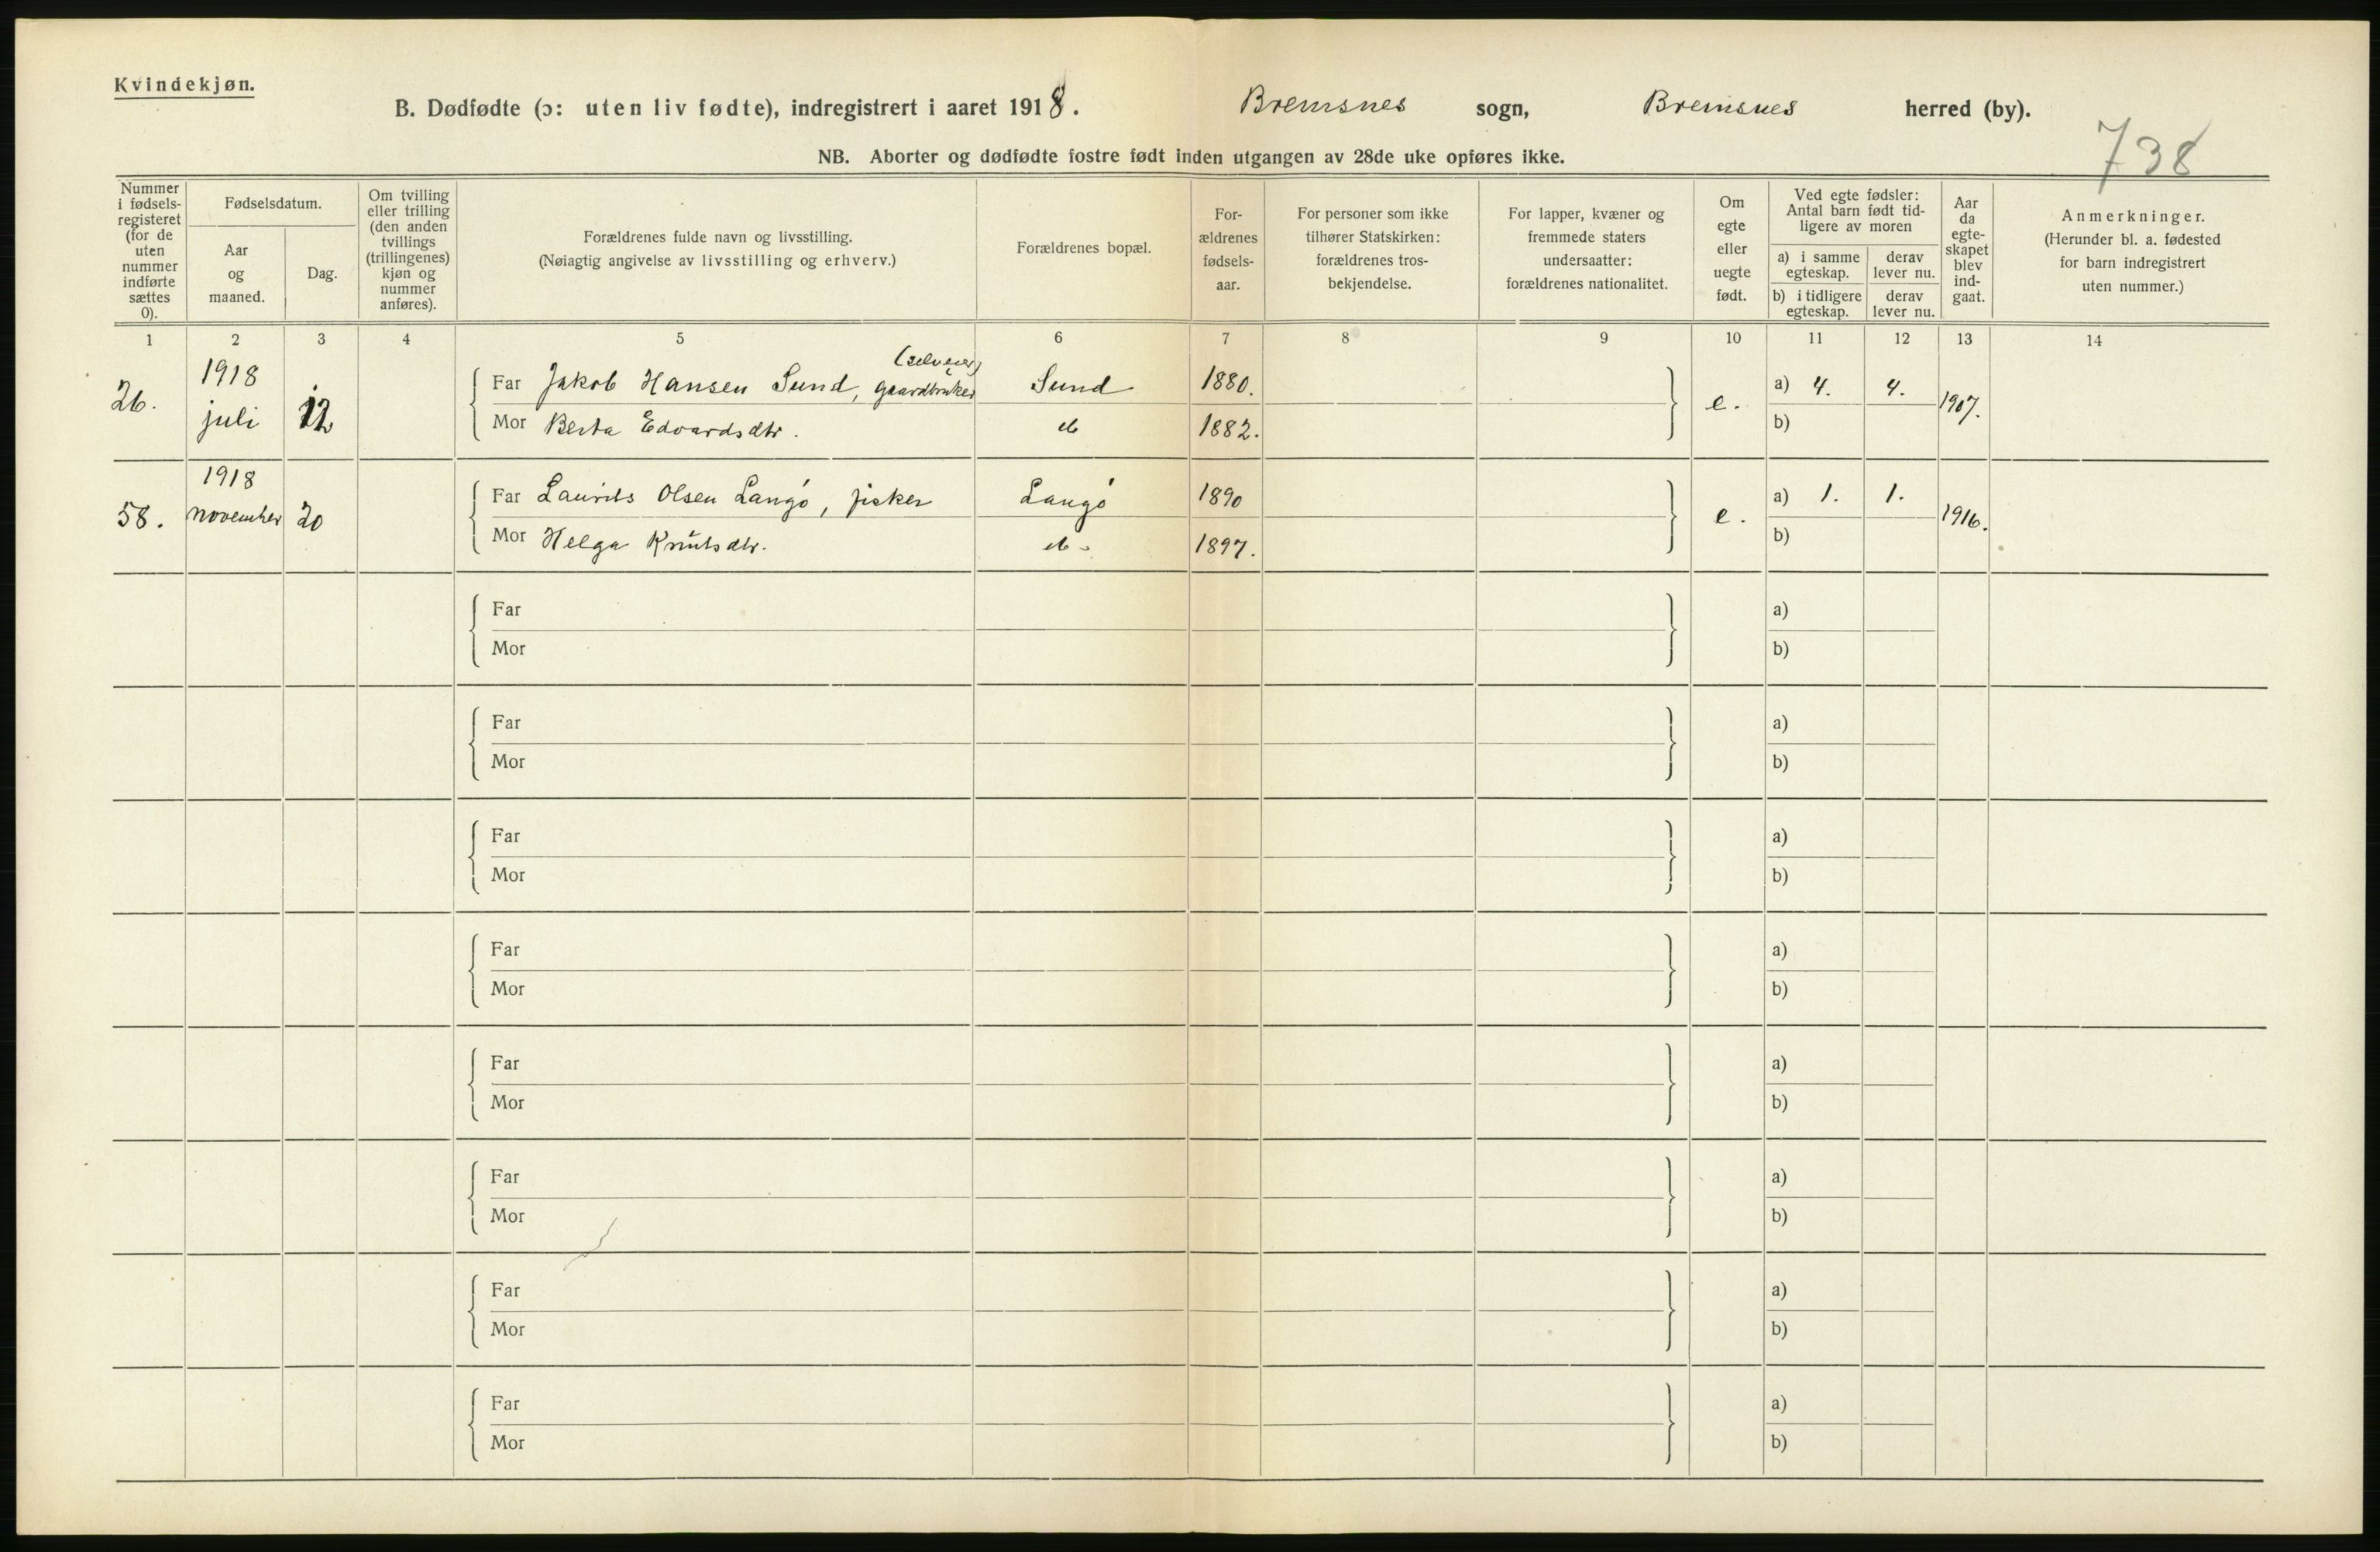 Kvindekjøn.
B. Dødfødte (ɔ: uten liv fødte), indregistrert i aaret 1918. Bremsnes sogn, Bremsnes herred (by).
738
NB. Aborter og dødfødte fostre født inden utgangen av 28de uke opføres ikke.
Nummer
i fødsels-
registeret
(for de
uten
nummer
indførte
sættes
0).
Fødselsdatum.
Aar
og
maaned.
Dag.
Om tvilling
eller trilling
(den anden
tvillings
(trillingenes)
kjøn og
nummer
anføres).
Forældrenes fulde navn og livsstilling.
(Nøiagtig angivelse av livsstilling og erhverv.)
Forældrenes bopæl.
For-
ældrenes
fødsels-
aar.
For personer som ikke
tilhører Statskirken:
forældrenes tros-
bekjendelse.
For lapper, kvæner og
fremmede staters
undersaatter:
forældrenes nationalitet.
Om
egte
eller
uegte
født.
Ved egte fødsler:
Antal barn født tid-
ligere av moren
a) i samme
egteskap.
derav
lever nu.
b) i tidligere
egteskap.
derav
lever nu.
Aar
da
egte-
skapet
blev
ind-
gaat.
Anmerkninger.
(Herunder bl. a. fødested
for barn indregistrert
uten nummer.)
1 2 3 4 5 6 7 8 9 10 11 12 13 14
1918 (selveier)
26. juli 12 Far Jakob Hansen Sund, gaardbruker Sund 1880. e. a) 4. 4. 1907.
Mor Berta Edvardsdtr. do 1882. b)
1918
58. november 20 Far Laurits Olsen Langó, fisker Langó 1890 e. a) 1. 1. 1916.
Mor Helga Knutsdtr. do 1897. b)
Far a)
Mor b)
Far a)
Mor b)
Far a)
Mor b)
Far a)
Mor b)
Far a)
Mor b)
Far a)
Mor b)
Far a)
Mor b)
Far a)
Mor b)